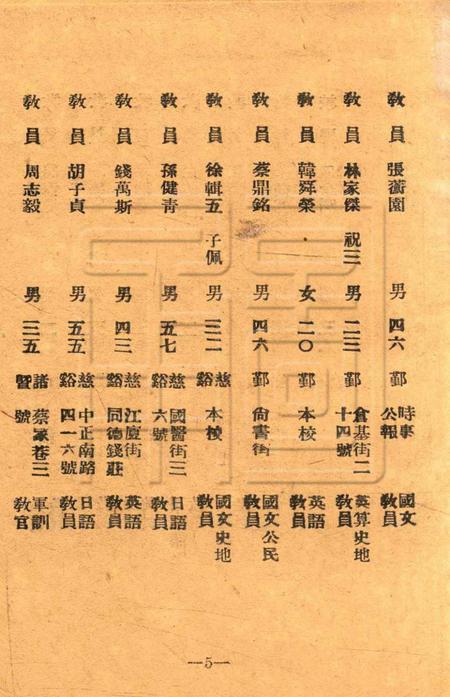 敎員 張薔園 男 四六 鄞 時事公報 國文敎員
敎員 林家傑 祝三 男 二三 鄞 倉基街二十四號 英算史地敎員
敎員 韓舜榮 女 二〇 鄞 本校 英語敎員
敎員 蔡鼎銘 男 四六 鄞 尙書街 國文公民敎員
敎員 徐輯五 子佩 男 三二 慈谿 本校 國文史地敎員
敎員 孫健靑 男 五七 慈谿 國醫街三六號 日語敎員
敎員 錢萬斯 男 四三 慈谿 江廈街同德錢莊 英語敎員
敎員 胡子貞 男 五五 慈谿 中正南路四一六號 日語敎員
敎員 周志毅 男 三五 諸暨 蔡家巷三號 軍訓敎官
—5—